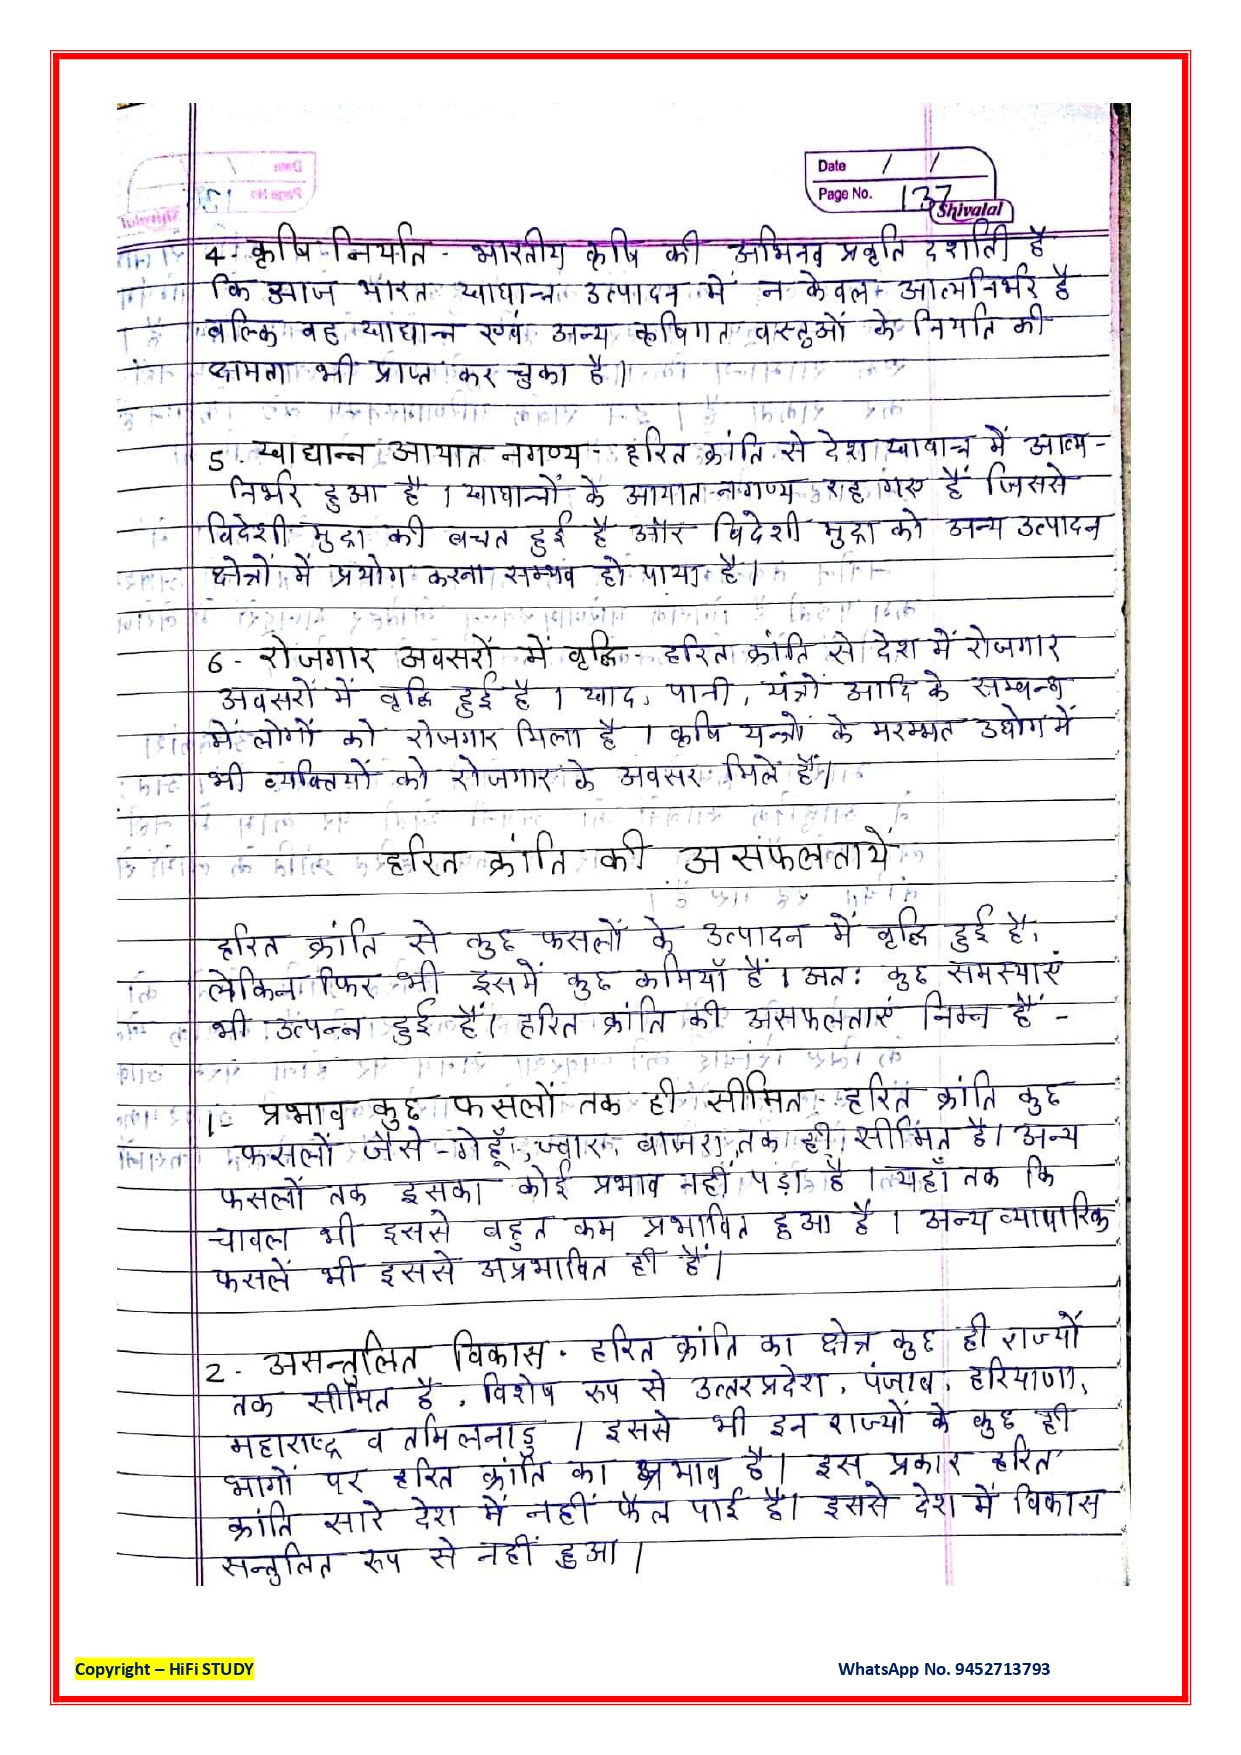 Date / /
Page No. 137
Shivalal
4- कृषि निर्यात - भारतीय कृषि की अभिनव प्रवृति दर्शाती है
कि आज भारत खाद्यान्न उत्पादन में न केवल आत्मनिर्भर है
बल्कि वह खाद्यान्न एवं अन्य कृषिगत वस्तुओं के निर्यात की
क्षमता भी प्राप्त कर चुका है।
5. खाद्यान्न आयात नगण्य - हरित क्रांति से देश खाद्यान्न में आत्म-
निर्भर हुआ है। खाद्यान्नों के आयात नगण्य रह गए हैं जिससे
विदेशी मुद्रा की बचत हुई है और विदेशी मुद्रा को अन्य उत्पादन
क्षेत्रों में प्रयोग करना सम्भव हो पाया है।
6- रोजगार अवसरों में वृद्धि - हरित क्रांति से देश में रोजगार
अवसरों में वृद्धि हुई है। खाद, पानी, यंत्रों आदि के सम्बन्ध
में लोगों को रोजगार मिला है। कृषि यन्त्रों के मरम्मत उद्योग में
भी व्यक्तियों को रोजगार के अवसर मिलें हैं।
हरित क्रांति की असफलतायें
हरित क्रांति से कुछ फसलों के उत्पादन में वृद्धि हुई है,
लेकिन फिर भी इसमें कुछ कमियाँ हैं। अतः कुछ समस्याएं
भी उत्पन्न हुई हैं। हरित क्रांति की असफलताएं निम्न हैं -
1- प्रभाव कुछ फसलों तक ही सीमित - हरित क्रांति कुछ
फसलों जैसे - गेहूँ, ज्वार, बाजरा, तक ही सीमित है। अन्य
फसलों तक इसका कोई प्रभाव नहीं पड़ा है। यहाँ तक कि
चावल भी इससे बहुत कम प्रभावित हुआ है। अन्य व्यापारिक
फसलें भी इससे अप्रभावित ही हैं।
2- असन्तुलित विकास - हरित क्रांति का क्षेत्र कुछ ही राज्यों
तक सीमित है, विशेष रूप से उत्तर प्रदेश, पंजाब, हरियाणा,
महाराष्ट्र व तमिलनाडु। इससे भी इन राज्यों के कुछ ही
भागों पर हरित क्रांति का प्रभाव है। इस प्रकार हरित
क्रांति सारे देश में नहीं फैल पाई है। इससे देश में विकास
सन्तुलित रूप से नहीं हुआ।
Copyright – HiFi STUDY
WhatsApp No. 9452713793